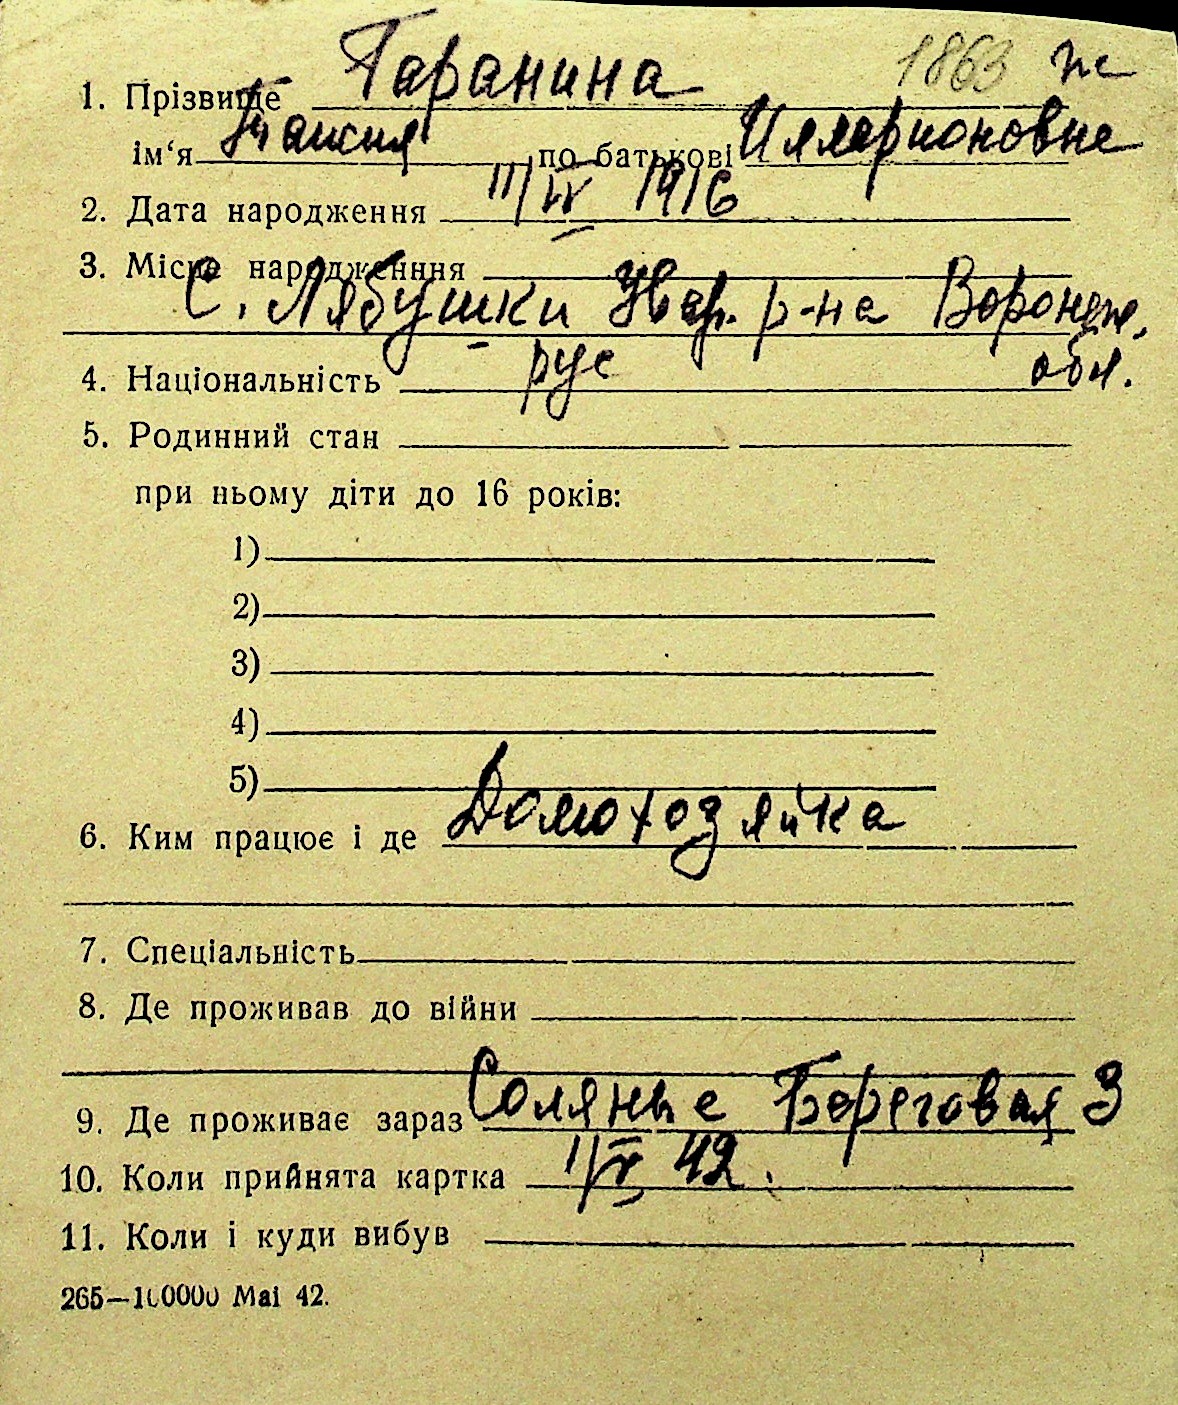 1863 ж
1. Прізвище Гаранина
ім‘я Таисия по батькові Илларионовна
2. Дата народження 11/IV 1916
3. Місце народженння
С. Лябушки Увар. р-на Воронеж.
обл.
4. Національність рус
5. Родинний стан
при ньому діти до 16 років:
1)
2)
3)
4)
5)
6. Ким працює і де Домохозяйка
7. Спеціальність
8. Де проживав до війни
9. Де проживає зараз Соляные Береговая 3
10. Коли прийнята картка 42.
11. Коли і куди вибув
265—100000 Маі 42.